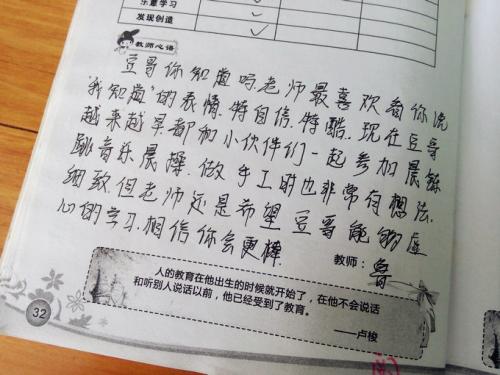 乐意学习
发现创造
教师心语
豆哥你知道吗,老师最喜欢看你说
“我知道”的表情.特自信.特酷.现在豆哥
越来越早都和小伙伴们一起参加晨锻
跳音乐晨操.做手工时也非常有想法.
细致.但老师还是希望豆哥能够虚
心的学习.相信你会更棒.
教师: 鲁
人的教育在他出生的时候就开始了,在他不会说话
和听别人说话以前,他已经受到了教育。
——卢梭
32